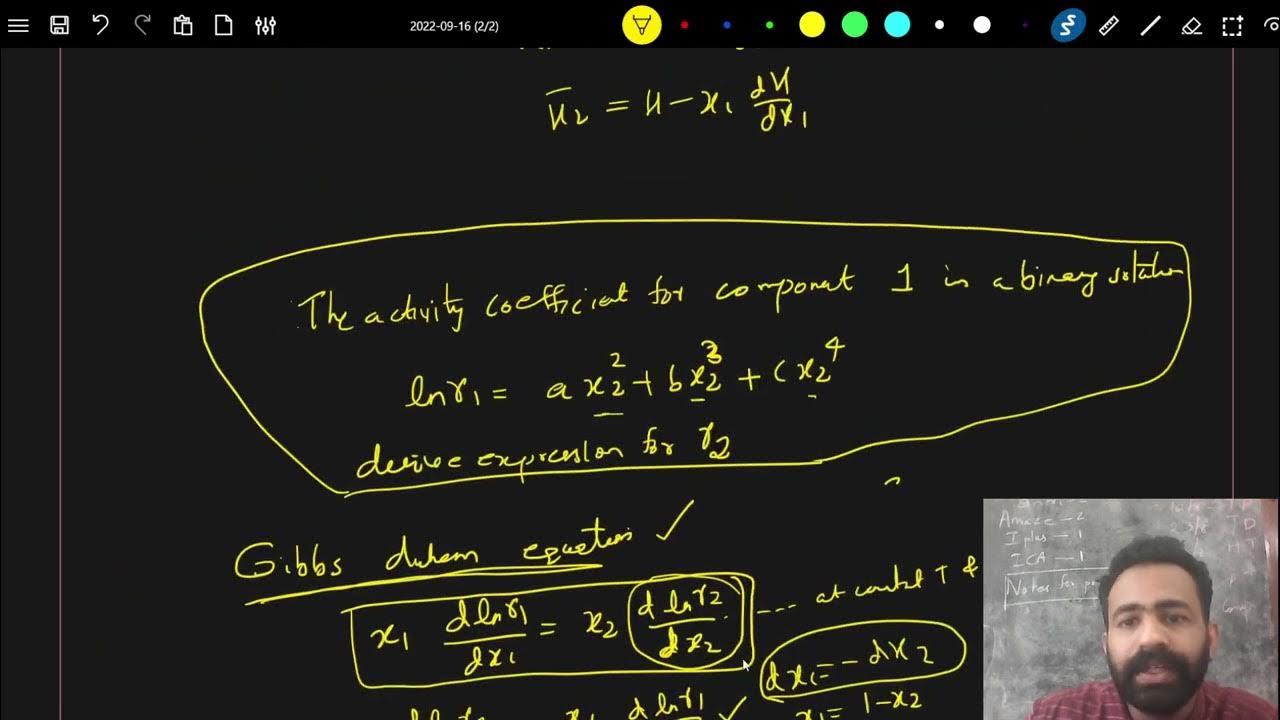 2022-09-16 (2/2)
H̅2 = H - x1 dH/dx1
The activity coefficient for component 1 in a binary solution
ln r1 = a x2^2 + b x2^3 + c x2^4
derive expression for r2
Gibbs duhem equation ✓
x1 d ln r1/dx1 = x2 d ln r2/dx2 ---- at constat T &
dx1 = - dx2
x1 d ln r1 ✓
x1 = 1-x2
Amaze - 2
I plus - 1
ICA - 1
Notes for